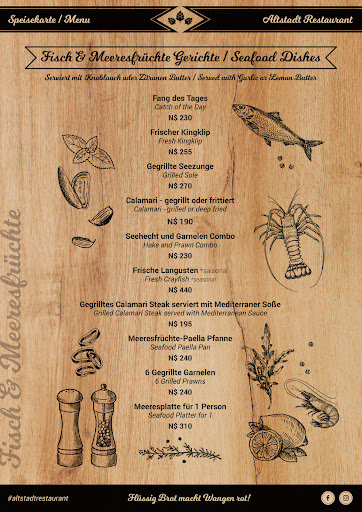 Speisekarte / Menu
Altstadt Restaurant
Fisch & Meeresfrüchte Gerichte / Seafood Dishes
Serviert mit Knoblauch oder Zitronen Butter / Served with Garlic or Lemon Butter
Fang des Tages
Catch of the Day
N$ 230
Frischer Kingklip
Fresh Kingklip
N$ 255
Gegrillte Seezunge
Grilled Sole
N$ 270
Calamari - gegrillt oder frittiert
Calamari - grilled or deep fried
N$ 190
Seehecht und Garnelen Combo
Hake and Prawn Combo
N$ 230
Frische Langusten *saisonal
Fresh Crayfish *seasonal
N$ 440
Gegrilltes Calamari Steak serviert mit Mediterraner Soße
Grilled Calamari Steak served with Mediterranean Sauce
N$ 195
Meeresfrüchte-Paella Pfanne
Seafood Paella Pan
N$ 240
6 Gegrillte Garnelen
6 Grilled Prawns
N$ 240
Meeresplatte für 1 Person
Seafood Platter for 1
N$ 310
Fisch & Meeresfrüchte
#altstadtrestaurant
Flüssig Brot macht Wangen rot!